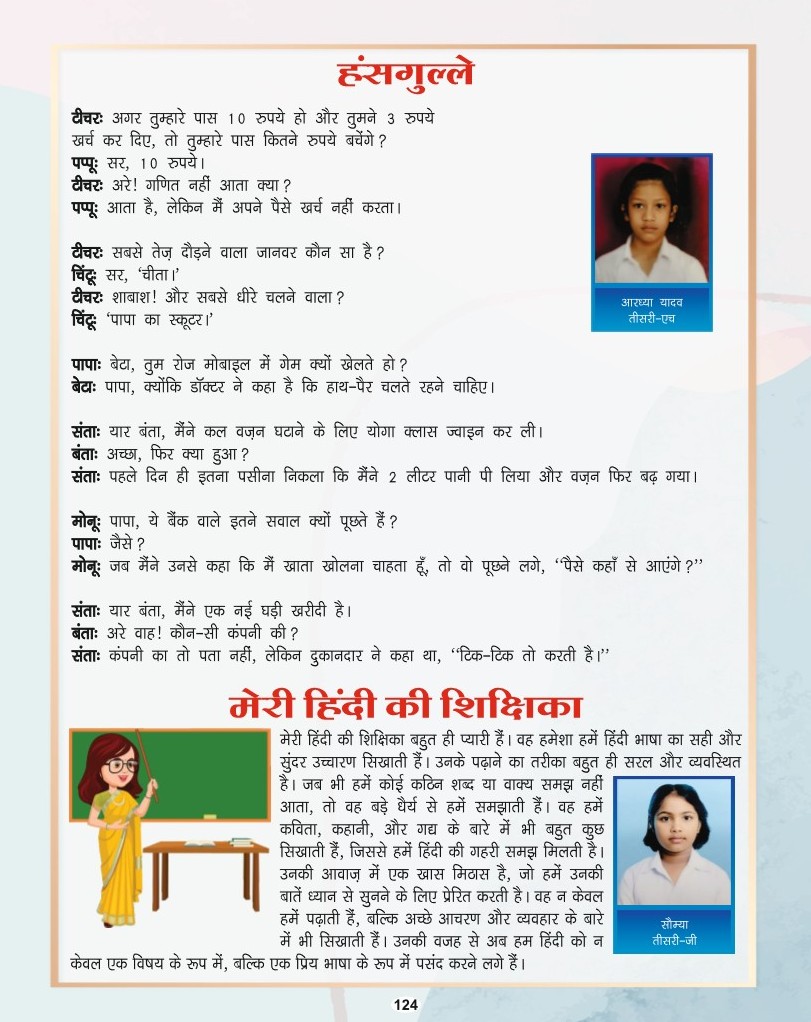 हंसगुल्ले
टीचरः अगर तुम्हारे पास 10 रुपये हो और तुमने 3 रुपये
खर्च कर दिए, तो तुम्हारे पास कितने रुपये बचेंगे?
पप्पूः सर, 10 रुपये।
टीचरः अरे! गणित नहीं आता क्या?
पप्पूः आता है, लेकिन मैं अपने पैसे खर्च नहीं करता।
टीचरः सबसे तेज़ दौड़ने वाला जानवर कौन सा है?
चिंटूः सर, ‘चीता।’
टीचरः शाबाश! और सबसे धीरे चलने वाला?
चिंटूः ‘पापा का स्कूटर।’
आरध्या यादव
तीसरी-एच
पापाः बेटा, तुम रोज मोबाइल में गेम क्यों खेलते हो?
बेटाः पापा, क्योंकि डॉक्टर ने कहा है कि हाथ-पैर चलते रहने चाहिए।
संताः यार बंता, मैंने कल वज़न घटाने के लिए योगा क्लास ज्वाइन कर ली।
बंताः अच्छा, फिर क्या हुआ?
संताः पहले दिन ही इतना पसीना निकला कि मैंने 2 लीटर पानी पी लिया और वज़न फिर बढ़ गया।
मोनूः पापा, ये बैंक वाले इतने सवाल क्यों पूछते हैं?
पापाः जैसे?
मोनूः जब मैंने उनसे कहा कि मैं खाता खोलना चाहता हूँ, तो वो पूछने लगे, ‘‘पैसे कहाँ से आएंगे?’’
संताः यार बंता, मैंने एक नई घड़ी खरीदी है।
बंताः अरे वाह! कौन-सी कंपनी की?
संताः कंपनी का तो पता नहीं, लेकिन दुकानदार ने कहा था, ‘‘टिक-टिक तो करती है।’’
मेरी हिंदी की शिक्षिका
मेरी हिंदी की शिक्षिका बहुत ही प्यारी हैं। वह हमेशा हमें हिंदी भाषा का सही और
सुंदर उच्चारण सिखाती हैं। उनके पढ़ाने का तरीका बहुत ही सरल और व्यवस्थित
है। जब भी हमें कोई कठिन शब्द या वाक्य समझ नहीं
आता, तो वह बड़े धैर्य से हमें समझाती हैं। वह हमें
कविता, कहानी, और गद्य के बारे में भी बहुत कुछ
सिखाती हैं, जिससे हमें हिंदी की गहरी समझ मिलती है।
उनकी आवाज़ में एक खास मिठास है, जो हमें उनकी
बातें ध्यान से सुनने के लिए प्रेरित करती है। वह न केवल
हमें पढ़ाती हैं, बल्कि अच्छे आचरण और व्यवहार के बारे
में भी सिखाती हैं। उनकी वजह से अब हम हिंदी को न
केवल एक विषय के रूप में, बल्कि एक प्रिय भाषा के रूप में पसंद करने लगे हैं।
सौम्या
तीसरी-जी
124